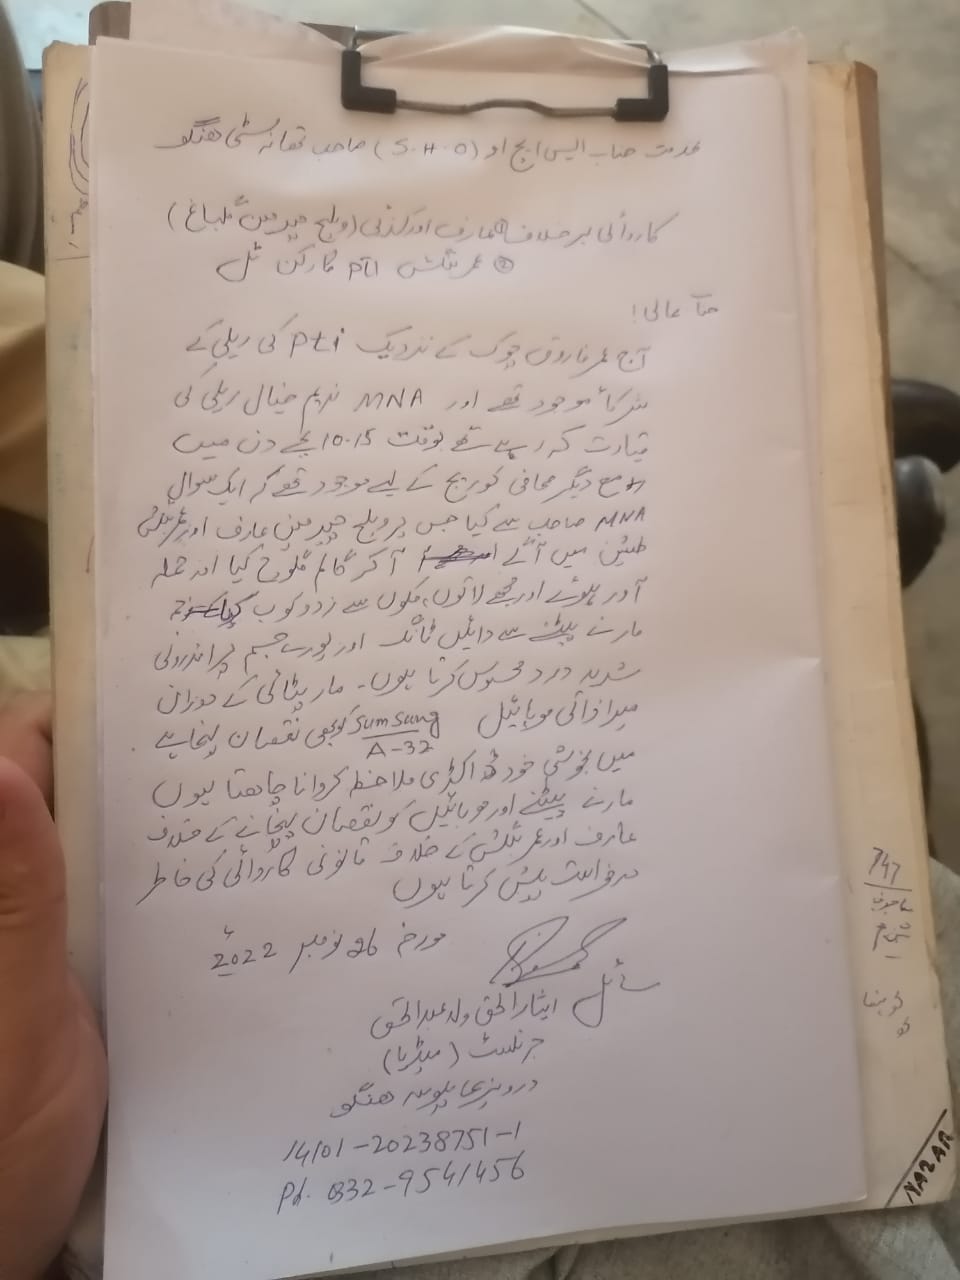 بخدمت جناب ایس ایچ او (S.H.O) صاحب تھانہ سٹی ھنگو
کاروائی برخلاف ① عارف اورکزئی (ویلج چیرمین گلباغ)
② عمر بنگش PTI کارکن ٹل
جناب عالی!
آج عمر فاروق چوک کے نزدیک Pti کی ریلی کے
شرکاء موجود تھے اور MNA ندیم خیال ریلی کی
قیادت کر رہے تھے بوقت 10.15 بجے دن میں
مع دیگر صحافی کوریج کے لیے موجود تھے کہ ایک سوال
MNA صاحب سے کیا جس پر ویلج چیرمین عارف اور عمر بنگش
طیش میں آگئے آکر گالم گلوچ کیا اور حملہ
آور ہوئے اور مجھے لاتوں، مکوں سے زدوکوب کیا
مارنے پیٹنے سے دائیں ٹانگ اور پورے جسم پر اندرونی
شدید درد محسوس کرتا ہوں۔ مار پٹائی کے دوران
میرا ذاتی موبائیل SumSung A-32 کو بھی نقصان پہنچا ہے
میں بخوشی خود ڈاکٹری ملاحظہ کروانا چاھتا ہوں
مارنے پیٹنے اور موبائیل کو نقصان پہنچانے کے خلاف
عارف اور عمر بنگش کے خلاف قانونی کاروائی کی خاطر
درخواست پیش کرتا ہوں
مورخہ 26 نومبر 2022ء
سائل
ایثار الحق ولد عبدالحق
جرنلسٹ (میڈیا)
ھنگو
14101-20238751-1
Ph. 0332-9541456
747
NAZAR